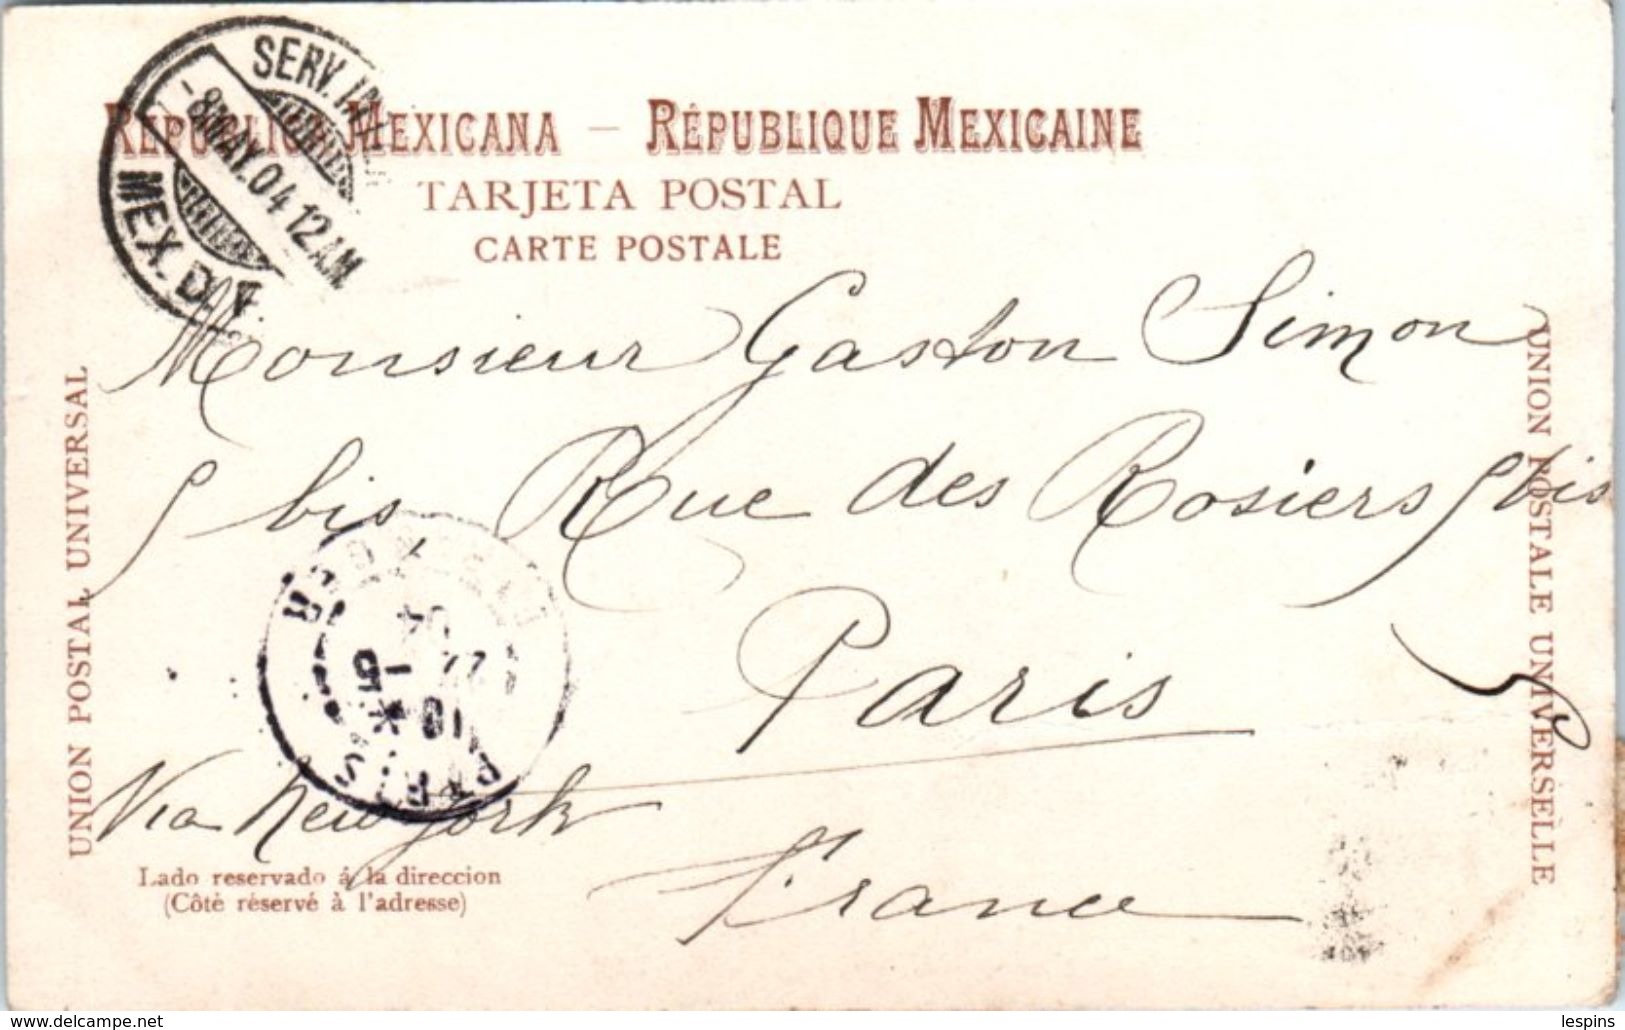 SERV. INT
- 8 MAY. 04 12 AM.
MEX. D. F.
REPUBLICA MEXICANA — RÉPUBLIQUE MEXICAINE
TARJETA POSTAL
CARTE POSTALE
Monsieur Gaston Simon
9 bis Rue des Rosiers 9 bis
Paris
France
Via New York
PARIS
04
UNION POSTAL UNIVERSAL
UNION POSTALE UNIVERSELLE
Lado reservado á la direccion
(Côté réservé à l'adresse)
www.delcampe.net
lespins